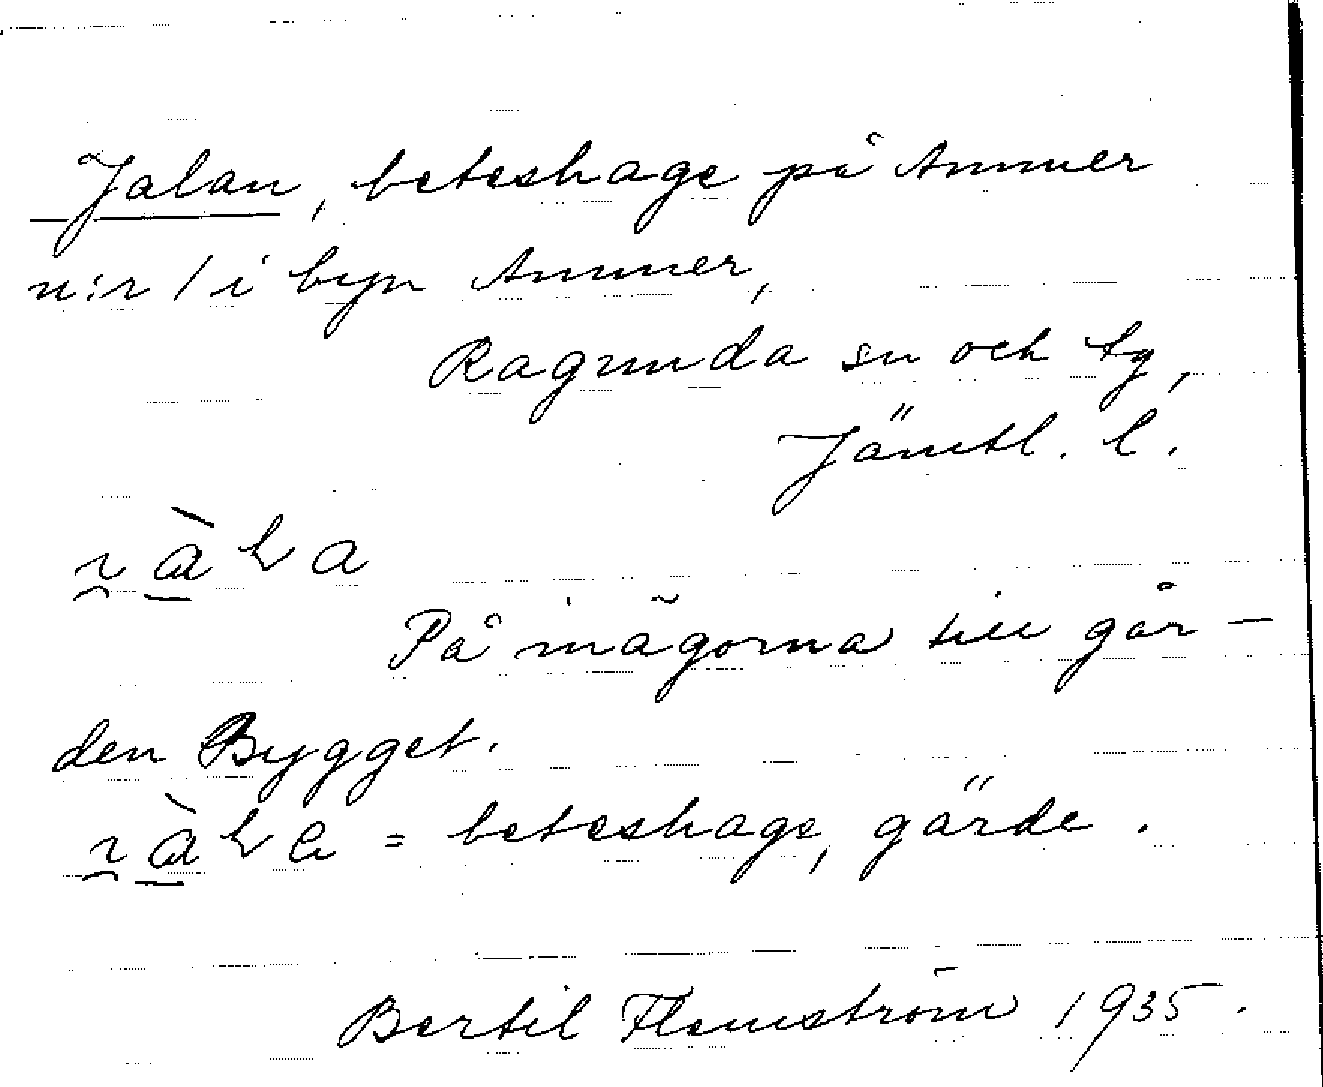 Jalan, beteshage på Ammer
n:r 1 i byn Ammer,
Ragunda sn och tg,
Jämtl. l.
På inägorna till går-
den Bygget.
= beteshage, gärde.
Bertil Flemström 1935.